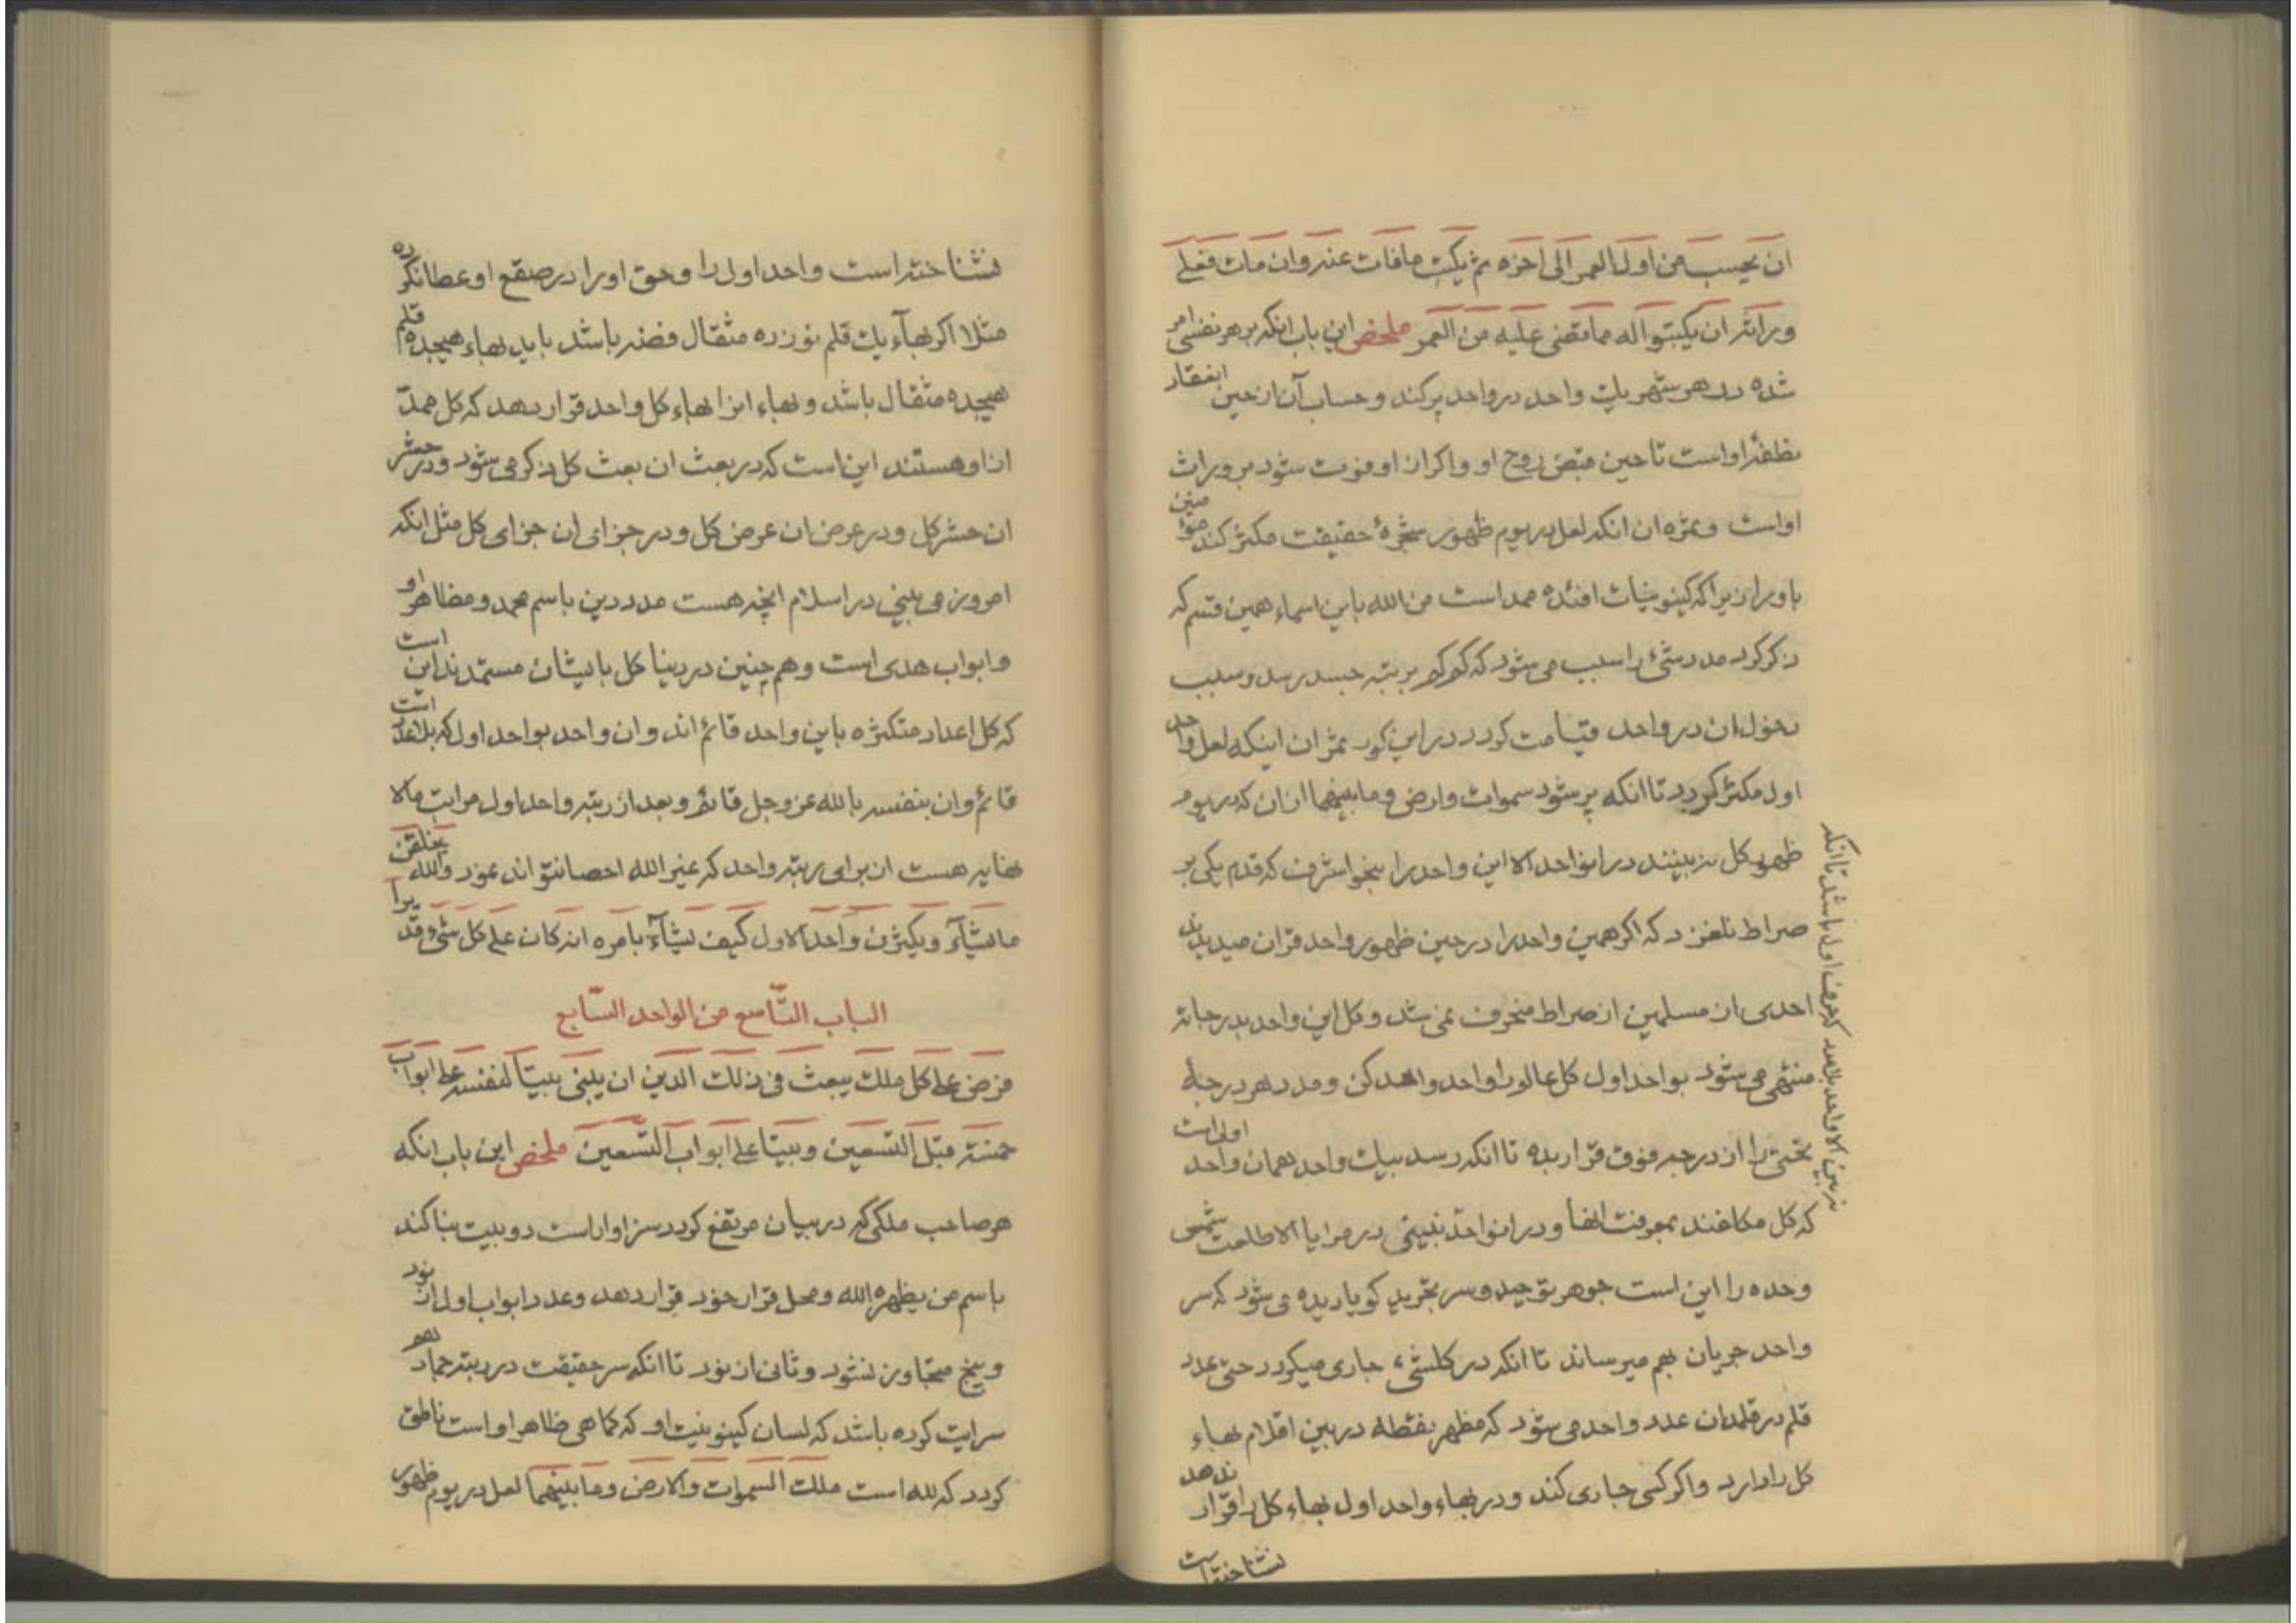 ان یحسب من اول العمر الی اخره ثم یکتب مافات عنه وان مات فعلی
وراثه ان یکتبوا له مما مضی علیه من العمر ملخص این باب انکه بر هر نفسی امر
شده در هر شهر یک واحد در واحد پر کند و حساب آن از حین انعقاد
نطفهٔ او است تا حین قبض روح او و اکر از او فوت شود بر وراث
او است و ثمره ان انکه لعل در یوم ظهور شجرهٔ حقیقت مکثر کند مؤمنین
باورا زیرا که کینونیات افئده ممد است من الله باین اسماء همین قسم که
ذکر کرد مدد شیء را سبب می شود که کم کم برتبه جسد رسد و سبب
دخول ان در واحد قیامت کردد در این کور ثمر ان اینکه لعل واحد
اول مکثر کردد تا انکه پر شود سموات وارض وما بینهما از ان که در یوم
ظهور کل نه بینند در انواحد الا این واحد را بنحو اشرف که قدم یکی بر
صراط نلغزد که اکر همین واحد را در حین ظهور واحد قران میدیدند
احدی از مسلمین از صراط منحرف نمی شد و کل این واحد بدرجاته
منتهی می شود بواحد اول کل عالم را واحد واحد کن و مدد هر درجهٔ
تحتی را از درجه فوق قرار بده تا انکه رسد بیک واحد همان واحد اول است
که کل مکلفند بمعرفت انها و در انواحد نبینی در مرایا الا طلعت شمس
وحده را این است جوهر توحید و سر تجرید کویا دیده می شود که سر
واحد جریان بهم میرساند تا انکه در کلشیء جاری میکردد حتی عدد
قلم در قلمدان عدد واحد می شود که مظهر نقطه در بین اقلام بهاء
کل را دارد واکر کسی جاری کند و در بهاء واحد اول بهاء کل را قرار ندهد
نشناخته است
نه بین الا واحد بلا عدد که حرف اول باشد تا انکه
نشناخته است واحد اول را وحق اورا در صقع او عطا نکرده
مثلا اکر بهآء یک قلم نوزده مثقال فضه باشد باید بهاء هیجده قلم
هیجده مثقال باشد و بهاء انرا بهاء کل واحد قرار دهد که کل ممد
از او هستند این است که در بعث ان بعث کل ذکر می شود ودر حشر
ان حشر کل ودر عرض ان عرض کل ودر جزای ان جزای کل مثل انکه
امروز می بینی در اسلام انچه هست مدد دین باسم محمد ومظاهر او
وابواب هدی است وهم چنین در دنیا کل بایشان مستمدند این است
که کل اعداد متکثره باین واحد قائم اند وان واحد بواحد اول که بلا عدد است
قائم وان بنفسه بالله عز وجل قائم وبعد از رتبه واحد اول مراتب مالا
نهایه هست از برای رتبه واحد که غیر الله احصا نتواند نمود والله یخلقن
ما یشآء ویکثرن واحد الاول کیف یشآء بامره انه کان علی کل شیء قدیرا
الباب التّاسع من الواحد السّابع
فرض علی کل ملک یبعث فی ذلک الدین ان یبنی بیتا لنفسه علی ابواب
خمسة قبل التسعین وبیتا علی ابواب التّسعین ملخص این باب انکه
هر صاحب ملکی که در بیان مرتفع کردد سزاوار است دو بیت بنا کند
باسم من یظهره الله ومحل قرار خود قرار دهد وعدد ابواب اول از نود
وپنج متجاوز نشود وثانی از نود تا انکه سر حقیقت در رتبه جماد هم
سرایت کرده باشد که لسان کینونیت او که کماهی ظاهر او است ناطق
کردد که لله است ملک السموات والارض وما بینهما لعل در یوم ظهور